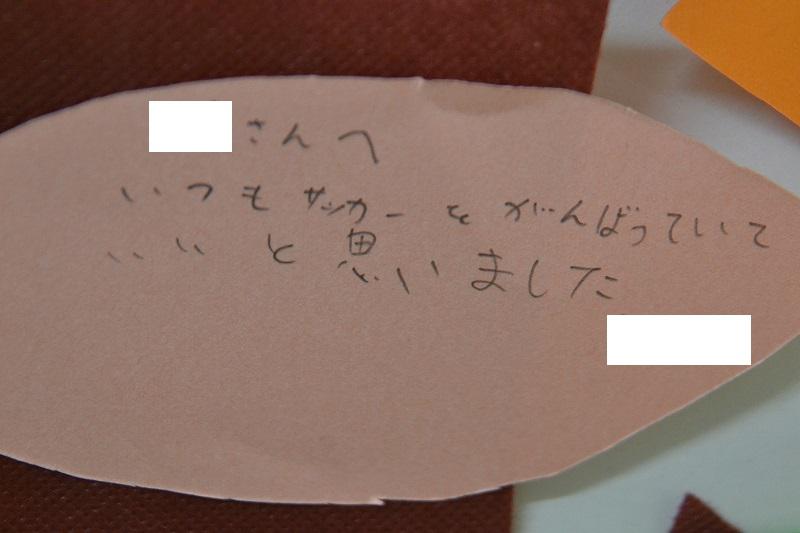 さんへ
いつもサッカーをがんばっていて
いいと思いました